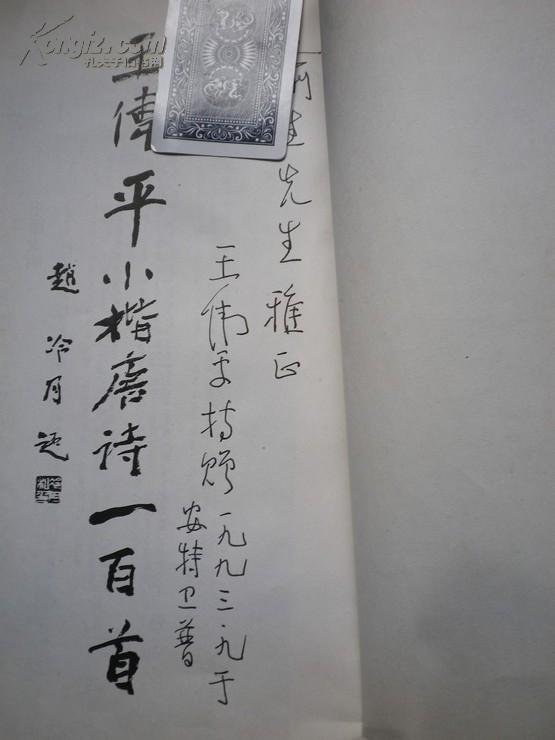 先生雅正
王伟平持赠 一九九三.九于
安特卫普
王伟平小楷唐诗一百首
赵冷月题
Kongfz.com
孔夫子旧书网